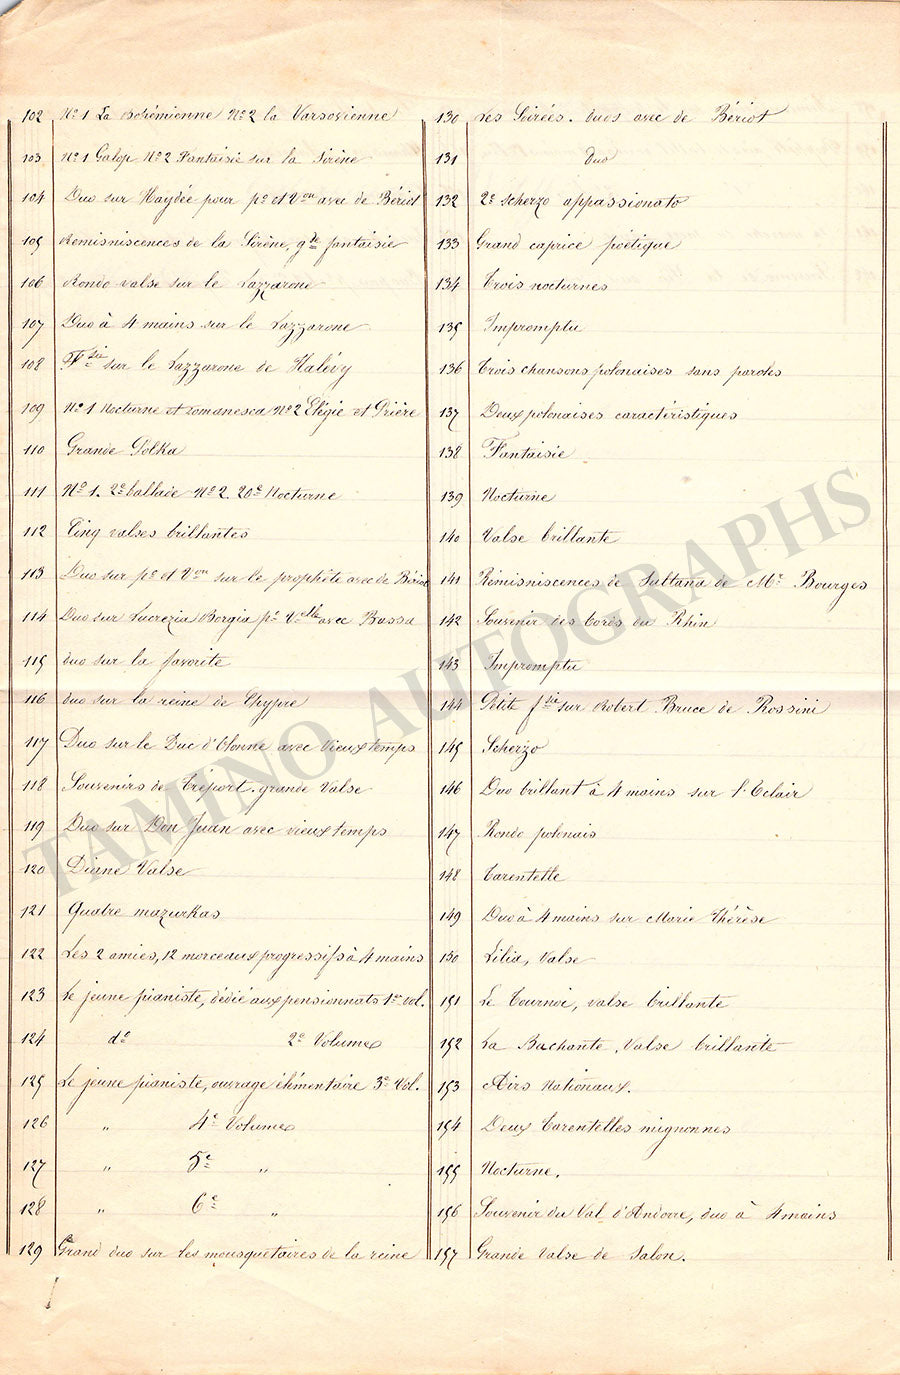 102 No 1 La Bohémienne No 2 la Varsovienne
103 No 1 Galop No 2 Fantaisie sur la Sirène
104 Duo sur Haydée pour po et Von avec de Bériot
105 Remisniscences de la Sirène, gde fantaisie
106 Rondo valse sur le Lazzarone
107 Duo à 4 mains sur le Lazzarone
108 Fsie sur le Lazzarone de Halévy
109 No 1 Nocturne et romanesca No 2 Elégie et Prière
110 Grande Polka
111 No 1. 2e ballade No 2. 20e Nocturne
112 Cinq valses brillantes
113 Duo sur po et Von sur le prophète avec de Bériot
114 Duo sur Lucrezia Borgia po Velle avec Bassa
115 duo sur la favorite
116 duo sur la reine de Chypre
117 Duo sur le Duc d'Olonne avec Vieuxtemps
118 Souvenirs de Tréport. grande Valse
119 Duo sur Don Juan avec vieuxtemps
120 Diane Valse
121 Quatre mazurkas
122 Les 2 amies, 12 morceaux progressifs à 4 mains
123 Le jeune pianiste, dédié aux pensionnats 1er vol.
124 do 2e Volume
125 Le jeune pianiste, ouvrage élémentaire 3e Vol.
126 " 4e Volume
127 " 5e "
128 " 6e "
129 Grand duo sur les mousquetaires de la reine
130 Les Soirées. duos avec de Bériot
131 duo
132 2e scherzo appassionato
133 Grand caprice poétique
134 Trois nocturnes
135 Impromptu
136 Trois chansons polonaises sans paroles
137 Deux polonaises caractéristiques
138 Fantaisie
139 Nocturne
140 Valse brillante
141 Rémisniscences de Sultana de Mr Bourges
142 Souvenir des bords du Rhin
143 Impromptu
144 Petite fsie sur Robert Bruce de Rossini
145 Scherzo
146 Duo brillant à 4 mains sur l'Eclair
147 Rondo polonais
148 Tarentelle
149 Duo à 4 mains sur Marie Thérèse
150 Lilia, Valse
151 Le Tournoi, valse brillante
152 La Bachante, Valse brillante
153 Airs Nationaux.
154 Deux Tarentelles mignonnes
155 Nocturne.
156 Souvenir du Val d'Andorre, duo à 4 mains
157 Grande Valse de Salon.
TAMINO AUTOGRAPHS